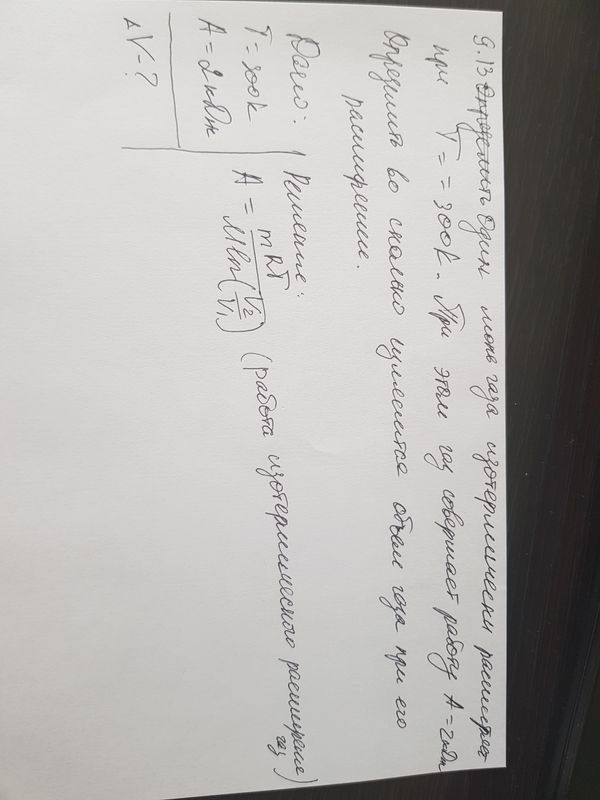 9.13 Определить Один моль газа изотермически расширяет
при T = = 300k. При этом газ совершает работу A = 2кДж
Определить во сколько изменится объем газа при его
расширение.
Дано: Решение:
T = 300k
A = 2кДж
A = m RT / M ln(V2/V1) (работа изотермического расширение газ)
ΔV - ?